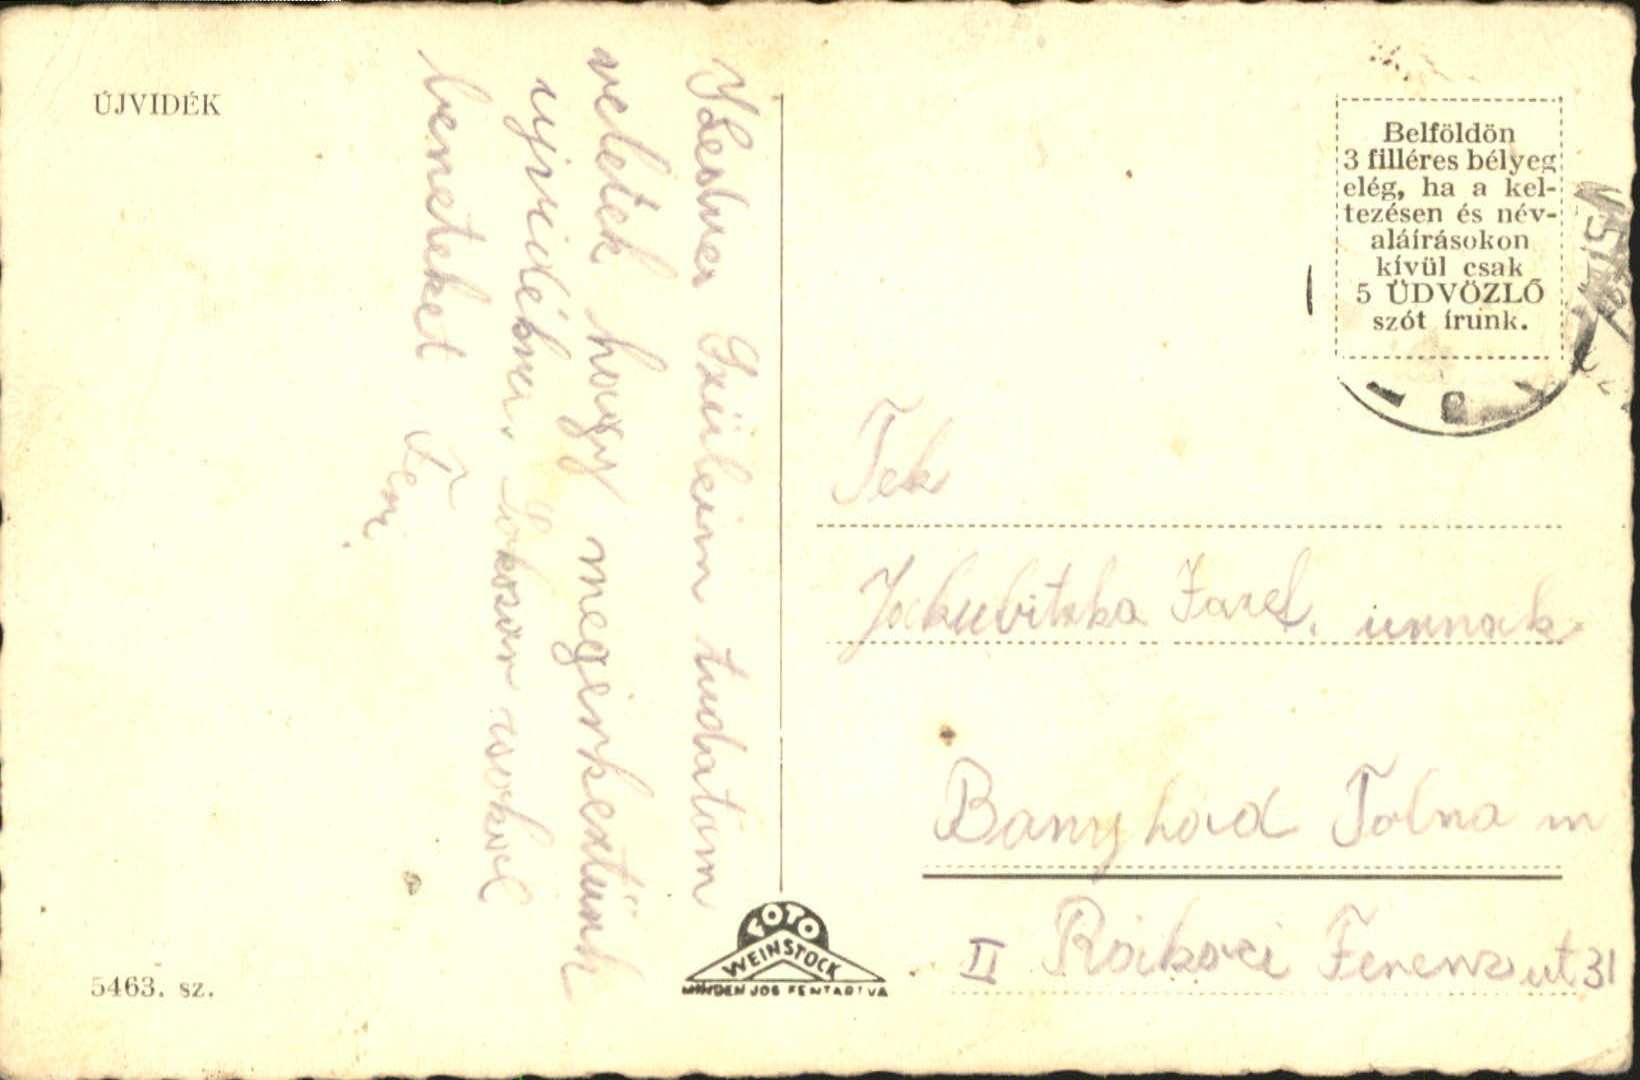 ÚJVIDÉK
Kedves Szüleim tudatom
veletek hogy megérkeztünk
ujvidékre. Sokszor csokol
benneteket Feri
5463. sz.
FOTO
WEINSTOCK
MINDEN JOG FENTARTVA
Belföldön
3 filléres bélyeg
elég, ha a kel-
tezésen és név-
aláírásokon
kívül csak
5 ÜDVÖZLŐ
szót írunk.
Tek
Jakubitzka urnak
Banyhád Tolna m
II Rákoci Ferenz ut 31